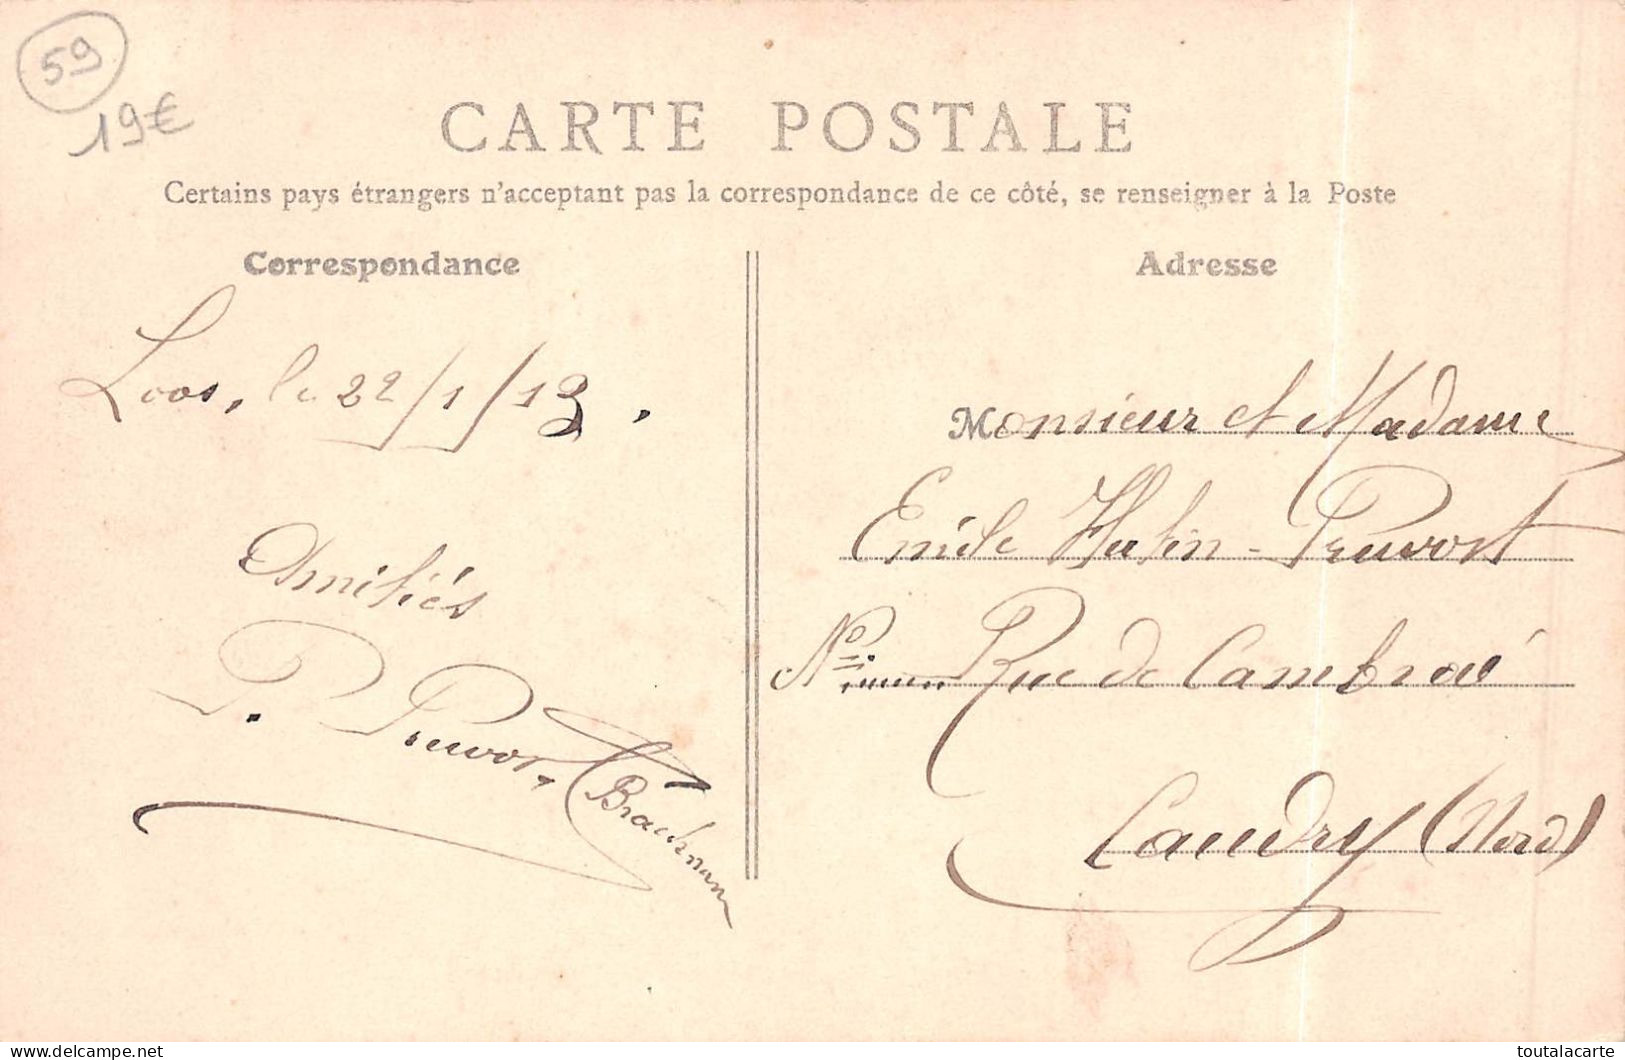 59
19€
CARTE POSTALE
Certains pays étrangers n'acceptant pas la correspondance de ce côté, se renseigner à la Poste
Correspondance
Loos, le 22/1/13.
Amitiés
P. Pruvost
Brachman
Adresse
Monsieur et Madame
Emile Hutin-Pruvost
Nº Rue de Cambrai
Caudry (Nord)
delcampe.net
toutalacarte